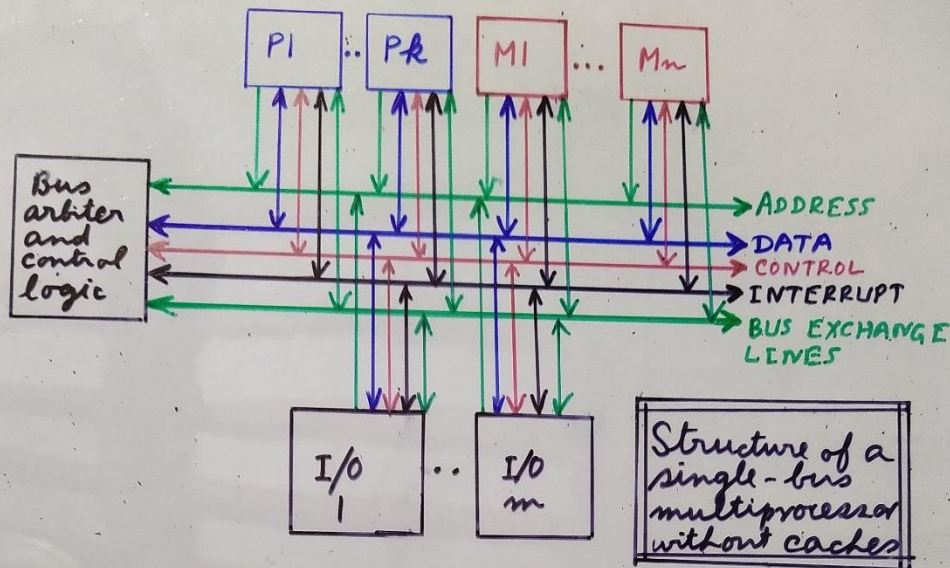 P1 .. Pk M1 ... Mn
Bus
arbiter
and
control
logic
ADDRESS
DATA
CONTROL
INTERRUPT
BUS EXCHANGE
LINES
I/O
1
..
I/O
m
Structure of a
single-bus
multiprocessor
without caches